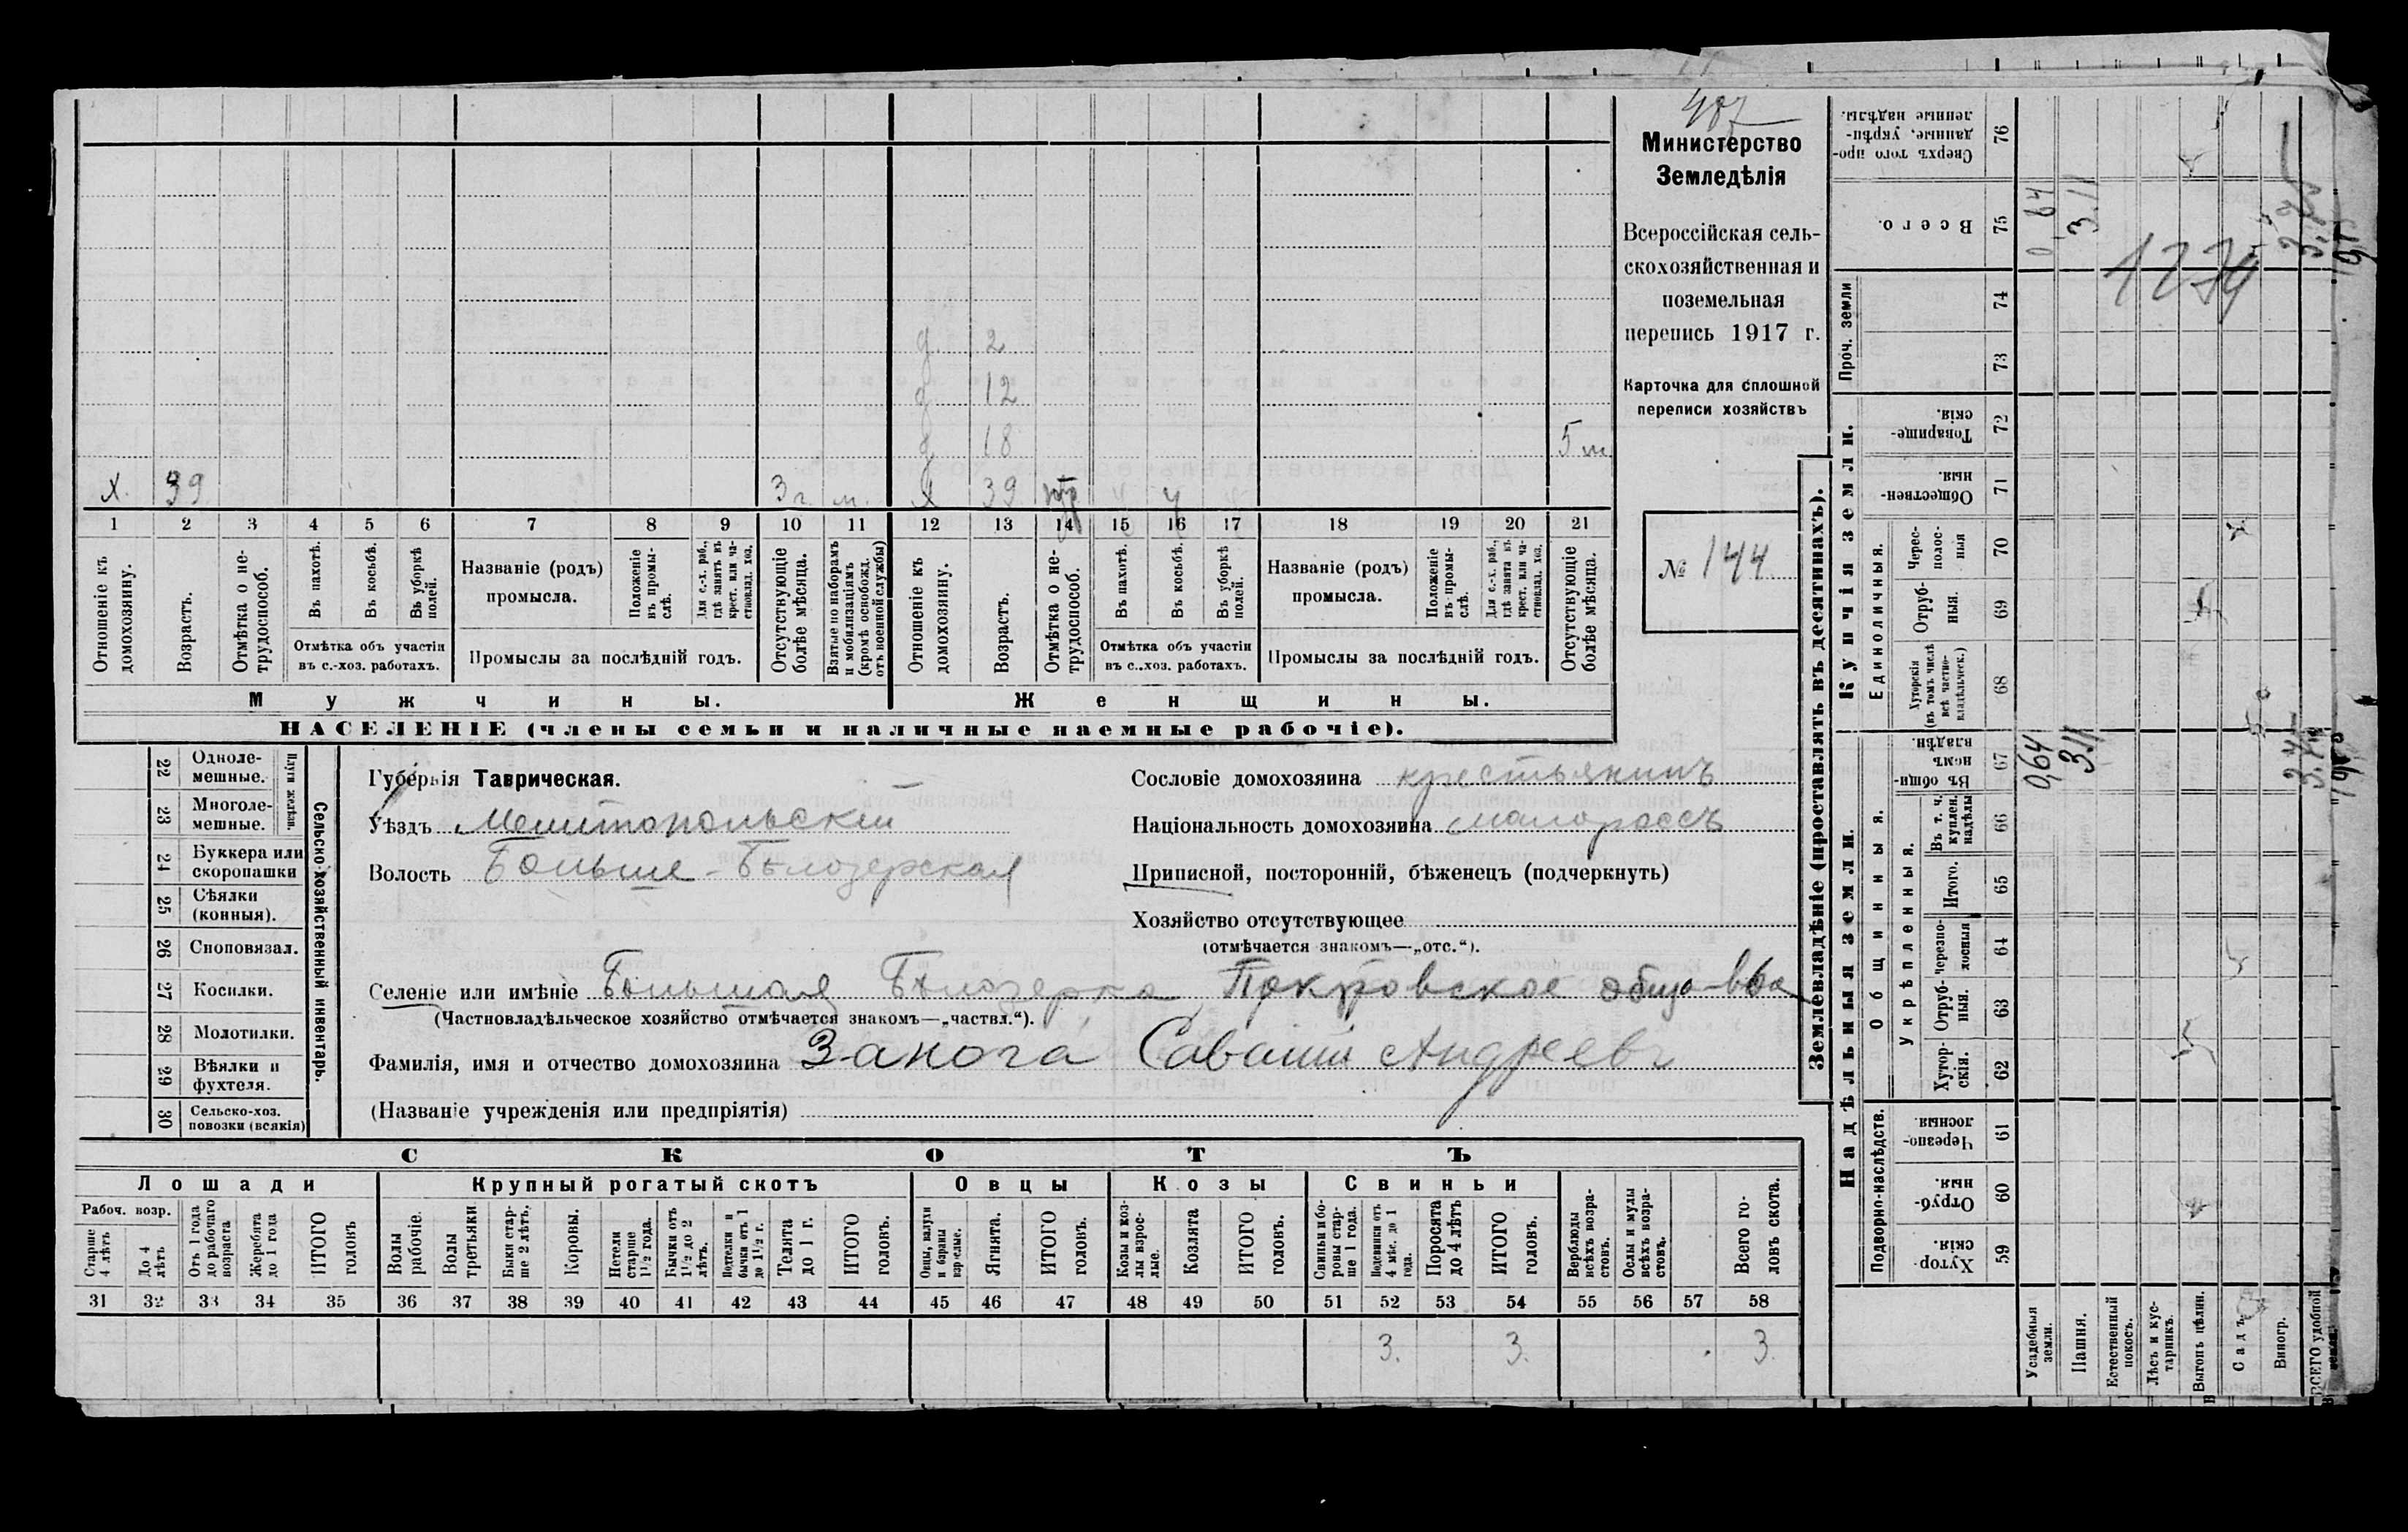 487
Министерство
Земледѣлія
Всероссійская сель-
скохозяйственная и
поземельная
перепись 1917 г.
Карточка для сплошной
переписи хозяйствъ
№ 144
д. 2
д 12
д 18 5 м
х. 39 3 г. м. х 39 ч ч ч
1 2 3 4 5 6 7 8 9 10 11 12 13 14 15 16 17 18 19 20 21
Отношеніе къ домохозяину.
Возрастъ.
Отмѣтка о не-трудоспособ.
Въ пахотѣ.
Въ косьбѣ.
Въ уборкѣ полей.
Отмѣтка объ участіи
въ с.-хоз. работахъ.
Названіе (родъ)
промысла.
Положеніе въ промы-слѣ.
Для с.-х. раб., гдѣ занятъ въ крест. или ча-стновлад. хоз.
Промыслы за послѣдній годъ.
Отсутствующіе болѣе мѣсяца.
Взятые по наборамъ и мобилизаціямъ (кромѣ освобожд. отъ военной службы)
Отношеніе къ домохозяину.
Возрастъ.
Отмѣтка о не-трудоспособ.
Въ пахотѣ.
Въ косьбѣ.
Въ уборкѣ полей.
Отмѣтка объ участіи
въ с.-хоз. работахъ.
Названіе (родъ)
промысла.
Положеніе въ промы-слѣ.
Для с.-х. раб., гдѣ занята въ крест. или ча-стновлад. хоз.
Промыслы за послѣдній годъ.
Отсутствующіе болѣе мѣсяца.
Мужчины. Женщины.
НАСЕЛЕНІЕ (члены семьи и наличные наемные рабочіе).
22 Одноле-мешные.
23 Многоле-мешные.
Плуги желѣзн.
24 Буккера или скоропашки
25 Сѣялки (конныя).
26 Сноповязал.
27 Косилки.
28 Молотилки.
29 Вѣялки и фухтеля.
30 Сельско-хоз. повозки (всякія)
Сельско-хозяйственный инвентарь.
Губернія Таврическая.
Уѣздъ Мелитопольскій
Волость Больше-Бѣлозерская
Сословіе домохозяина крестьянинъ
Національность домохозяина малороссъ
Приписной, посторонній, бѣженецъ (подчеркнуть)
Хозяйство отсутствующее
(отмѣчается знакомъ—„отс.“).
Селеніе или имѣніе Большая Бѣлозерка, Покровское общ-во
(Частновладѣльческое хозяйство отмѣчается знакомъ—„частвл.“).
Фамилія, имя и отчество домохозяина Занога Саватій Андреевъ
(Названіе учрежденія или предпріятія)
СКОТЪ
Лошади Крупный рогатый скотъ Овцы Козы Свиньи
Рабоч. возр.
Старше 4 лѣтъ
До 4 лѣтъ
Отъ 1 года до рабочаго возраста
Жеребята до 1 года
ИТОГО головъ
Волы рабочіе.
Волы третьяки.
Быки стар-ше 2 лѣтъ.
Коровы.
Нетели старше 1½ года.
Бычки отъ 1½ до 2 лѣтъ.
Подтелки и бычки отъ 1 до 1½ г.
Телята до 1 г.
ИТОГО головъ.
Овцы, валухи и бараны взрослые.
Ягнята.
ИТОГО головъ.
Козы и коз-лы взрос-лые.
Козлята
ИТОГО головъ.
Свиньи и бо-ровы стар-ше 1 года.
Подсвинки отъ 4 мѣс. до 1 года.
Поросята до 4 лѣтъ
ИТОГО головъ.
Верблюды всѣхъ возра-стовъ.
Ослы и мулы всѣхъ возра-стовъ.
Всего го-ловъ скота.
31 32 33 34 35 36 37 38 39 40 41 42 43 44 45 46 47 48 49 50 51 52 53 54 55 56 57 58
3. 3. 3
Землевладѣніе (проставлять въ десятинахъ).
Надѣльныя земли. Купчія земли.
Проч. земли
Подворно-наслѣдств.
Общинныя.
Укрѣпленныя.
Единоличныя.
Хутор-скія. 59
Отруб-ныя. 60
Черезпо-лосныя. 61
Хутор-скія. 62
Отруб-ныя. 63
Черезпо-лосныя 64
Итого. 65
Въ т. ч. куплен. надѣлы 66
Въ общин-номъ владѣн. 67
Хуторскія (въ томъ числѣ всѣ частно-владѣльческ.) 68
Отруб-ныя. 69
Черес-полос-ныя 70
Обществен-ныя. 71
Товарище-скія. 72
73
74
Всего. 75
Сверхъ того про-данные, укрѣп-ленные надѣлы. 76
Усадебныя земли. 0,64 0,64
Пашня. 3.11 3.11
Естественный покосъ.
Лѣсъ и кус-тарникъ.
Выгонъ цѣлин.
Садъ
Виногр.
ВСЕГО удобной земли. 3.75 3,75
1274